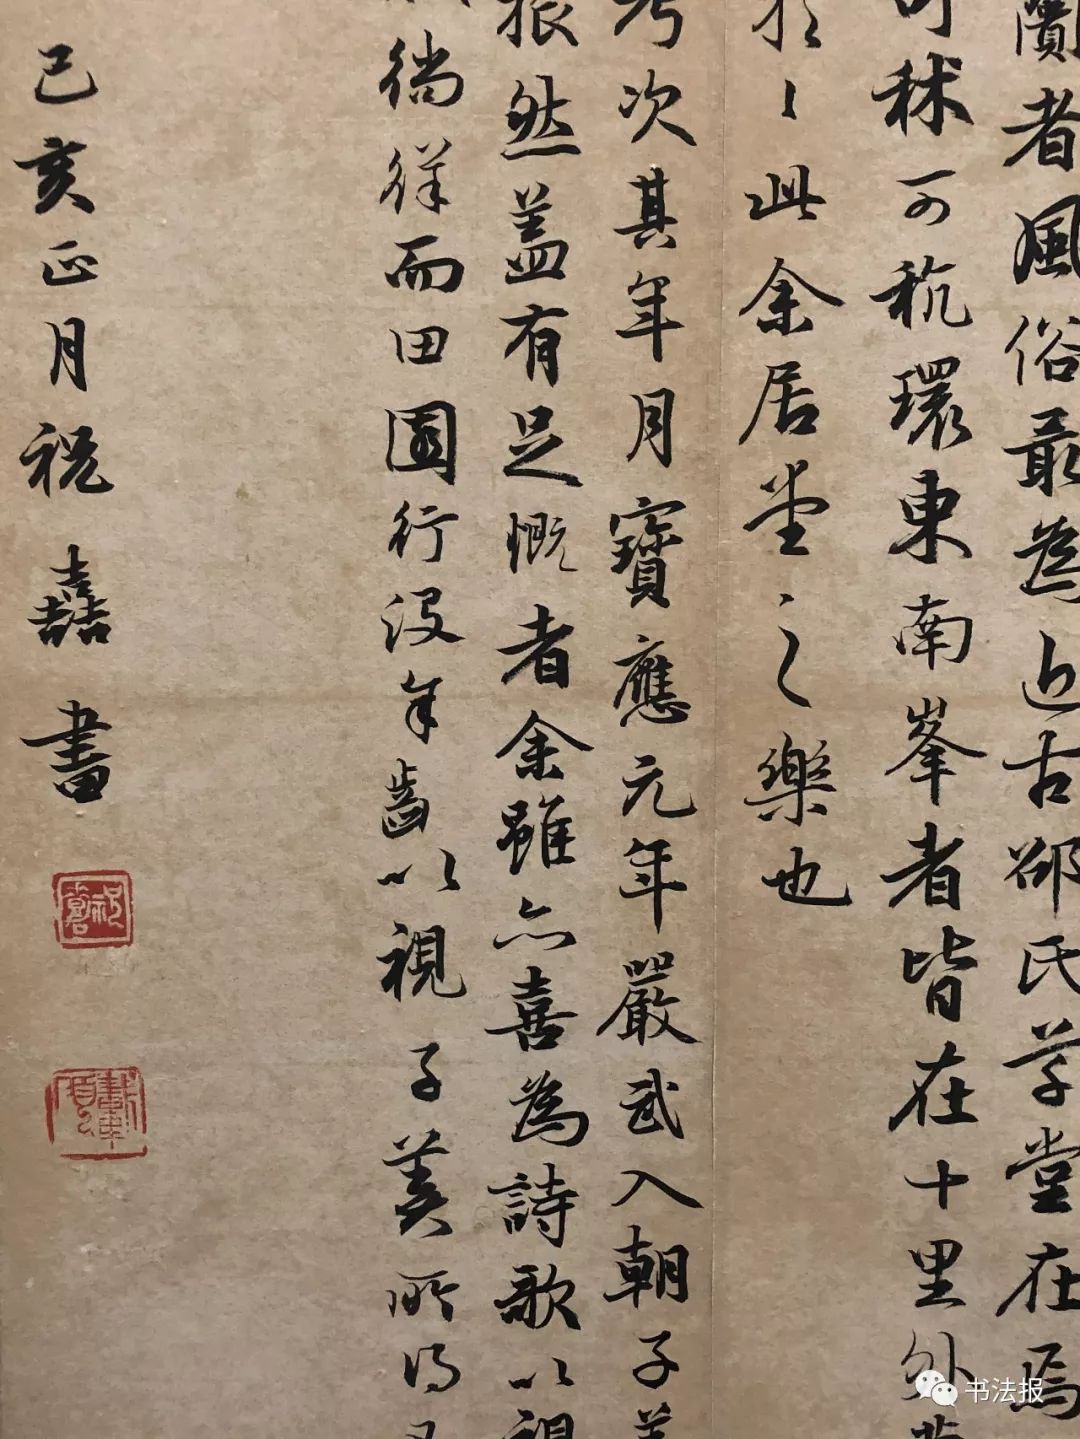 闠者風俗最為近古邵氏草堂在焉
可秫可秔環東南峯者皆在十里外
於〻此余居堂之樂也
考次其年月寶應元年嚴武入朝子美
悵然盖有足慨者余雖亦喜為詩歌以視
徜徉而田園行没年齒以視子美所得
己亥正月祝嘉書
祝嘉
书法报